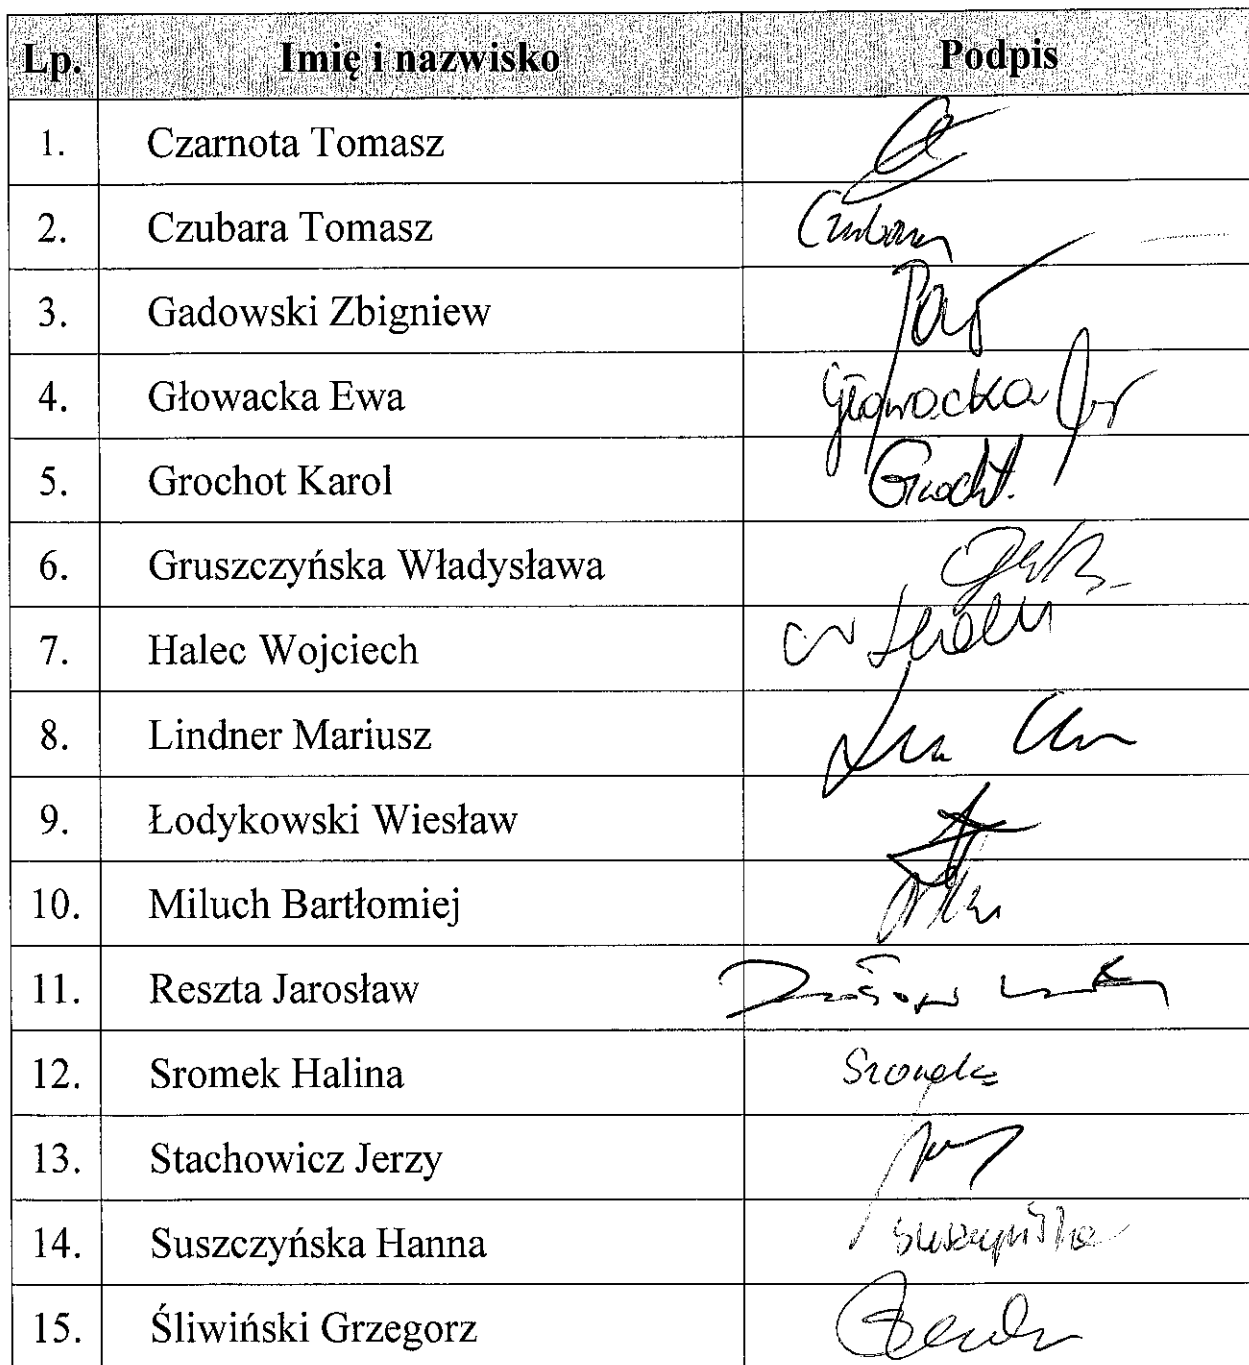 Lp. Imię i nazwisko Podpis
1. Czarnota Tomasz
2. Czubara Tomasz Czubara
3. Gadowski Zbigniew
4. Głowacka Ewa Głowacka
5. Grochot Karol
6. Gruszczyńska Władysława
7. Halec Wojciech
8. Lindner Mariusz
9. Łodykowski Wiesław
10. Miluch Bartłomiej
11. Reszta Jarosław
12. Sromek Halina
13. Stachowicz Jerzy
14. Suszczyńska Hanna
15. Śliwiński Grzegorz